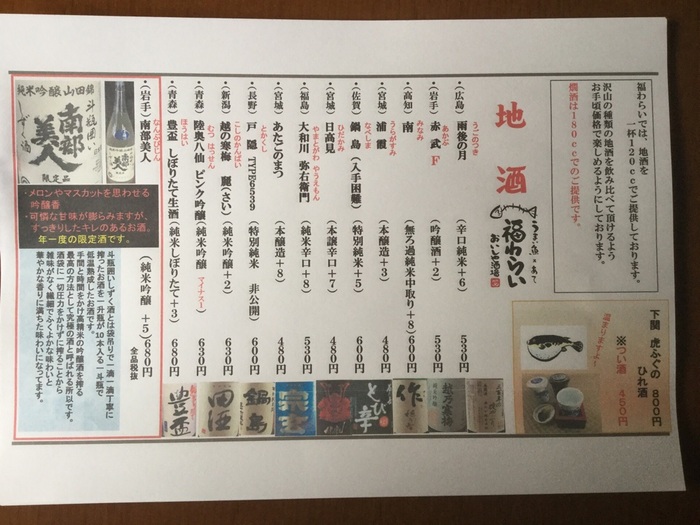 福わらいでは、地酒を
一杯120ccでご提供しております。
沢山の種類の地酒を飲み比べて頂けるよう
お手頃価格で楽しめるようにしております。
燗酒は180ccでのご提供です。
下関 虎ふぐの ひれ酒 800円
※つい酒 450円
温まりますよ~
地酒
うま魚のあて
福わらい
おいしい酒場
・(広島) 雨後の月 うごのつき (辛口純米+6) 530円
・(岩手) 赤武 F あかぶ (吟醸酒+2) 530円
・(高知) 南 みなみ (無ろ過純米中取り+8) 600円
・(宮城) 浦霞 うらがすみ (本醸造+3) 480円
・(佐賀) 鍋島 (入手困難) なべしま (特別純米+5) 600円
・(宮城) 日高見 ひだかみ (本醸辛口+7) 480円
・(福島) 大和川 弥右衛門 やまとがわ やうえもん (純米辛口+8) 530円
・(宮城) あたごのまつ (本醸造+8) 480円
・(長野) 戸隠 TYPE6539 とがくし (特別純米 非公開) 600円
・(新潟) 越の寒梅 麗(さい) こしのかんばい (純米吟醸+2) 630円
・(青森) 陸奥八仙 ピンク吟醸 むつ はっせん (純米吟醸 マイナス1) 630円
・(青森) 豊盃 しぼりたて生酒 ほうはい (純米しぼりたて+3) 680円
・(岩手) 南部美人 なんぶびじん (純米吟醸 +5) 680円
全品税抜
純米吟醸 山田錦
斗瓶囲い
しずく酒
南部美人
限定品
・メロンやマスカットを思わせる
吟醸香
・可憐な甘味が膨らみますが、
すっきりしたキレのあるお酒。
年一度の限定酒です。
斗瓶囲いしずく酒とは袋吊りで一滴一滴丁寧に
搾ったお酒を一升瓶が10本入る一斗瓶で
低温熟成したお酒です。
手間と時間をかけ高精米の吟醸酒を搾る
最高の方法として究極の酒と呼ばれる所以です。
酒袋に一切圧力をかけずに搾ることから
雑味がなく繊細でふくよかな味わいと
華やかな香りに満ちた味わいになってます。
豊盃
田酒
鍋島
宗玄
とび辛
作
越乃寒梅